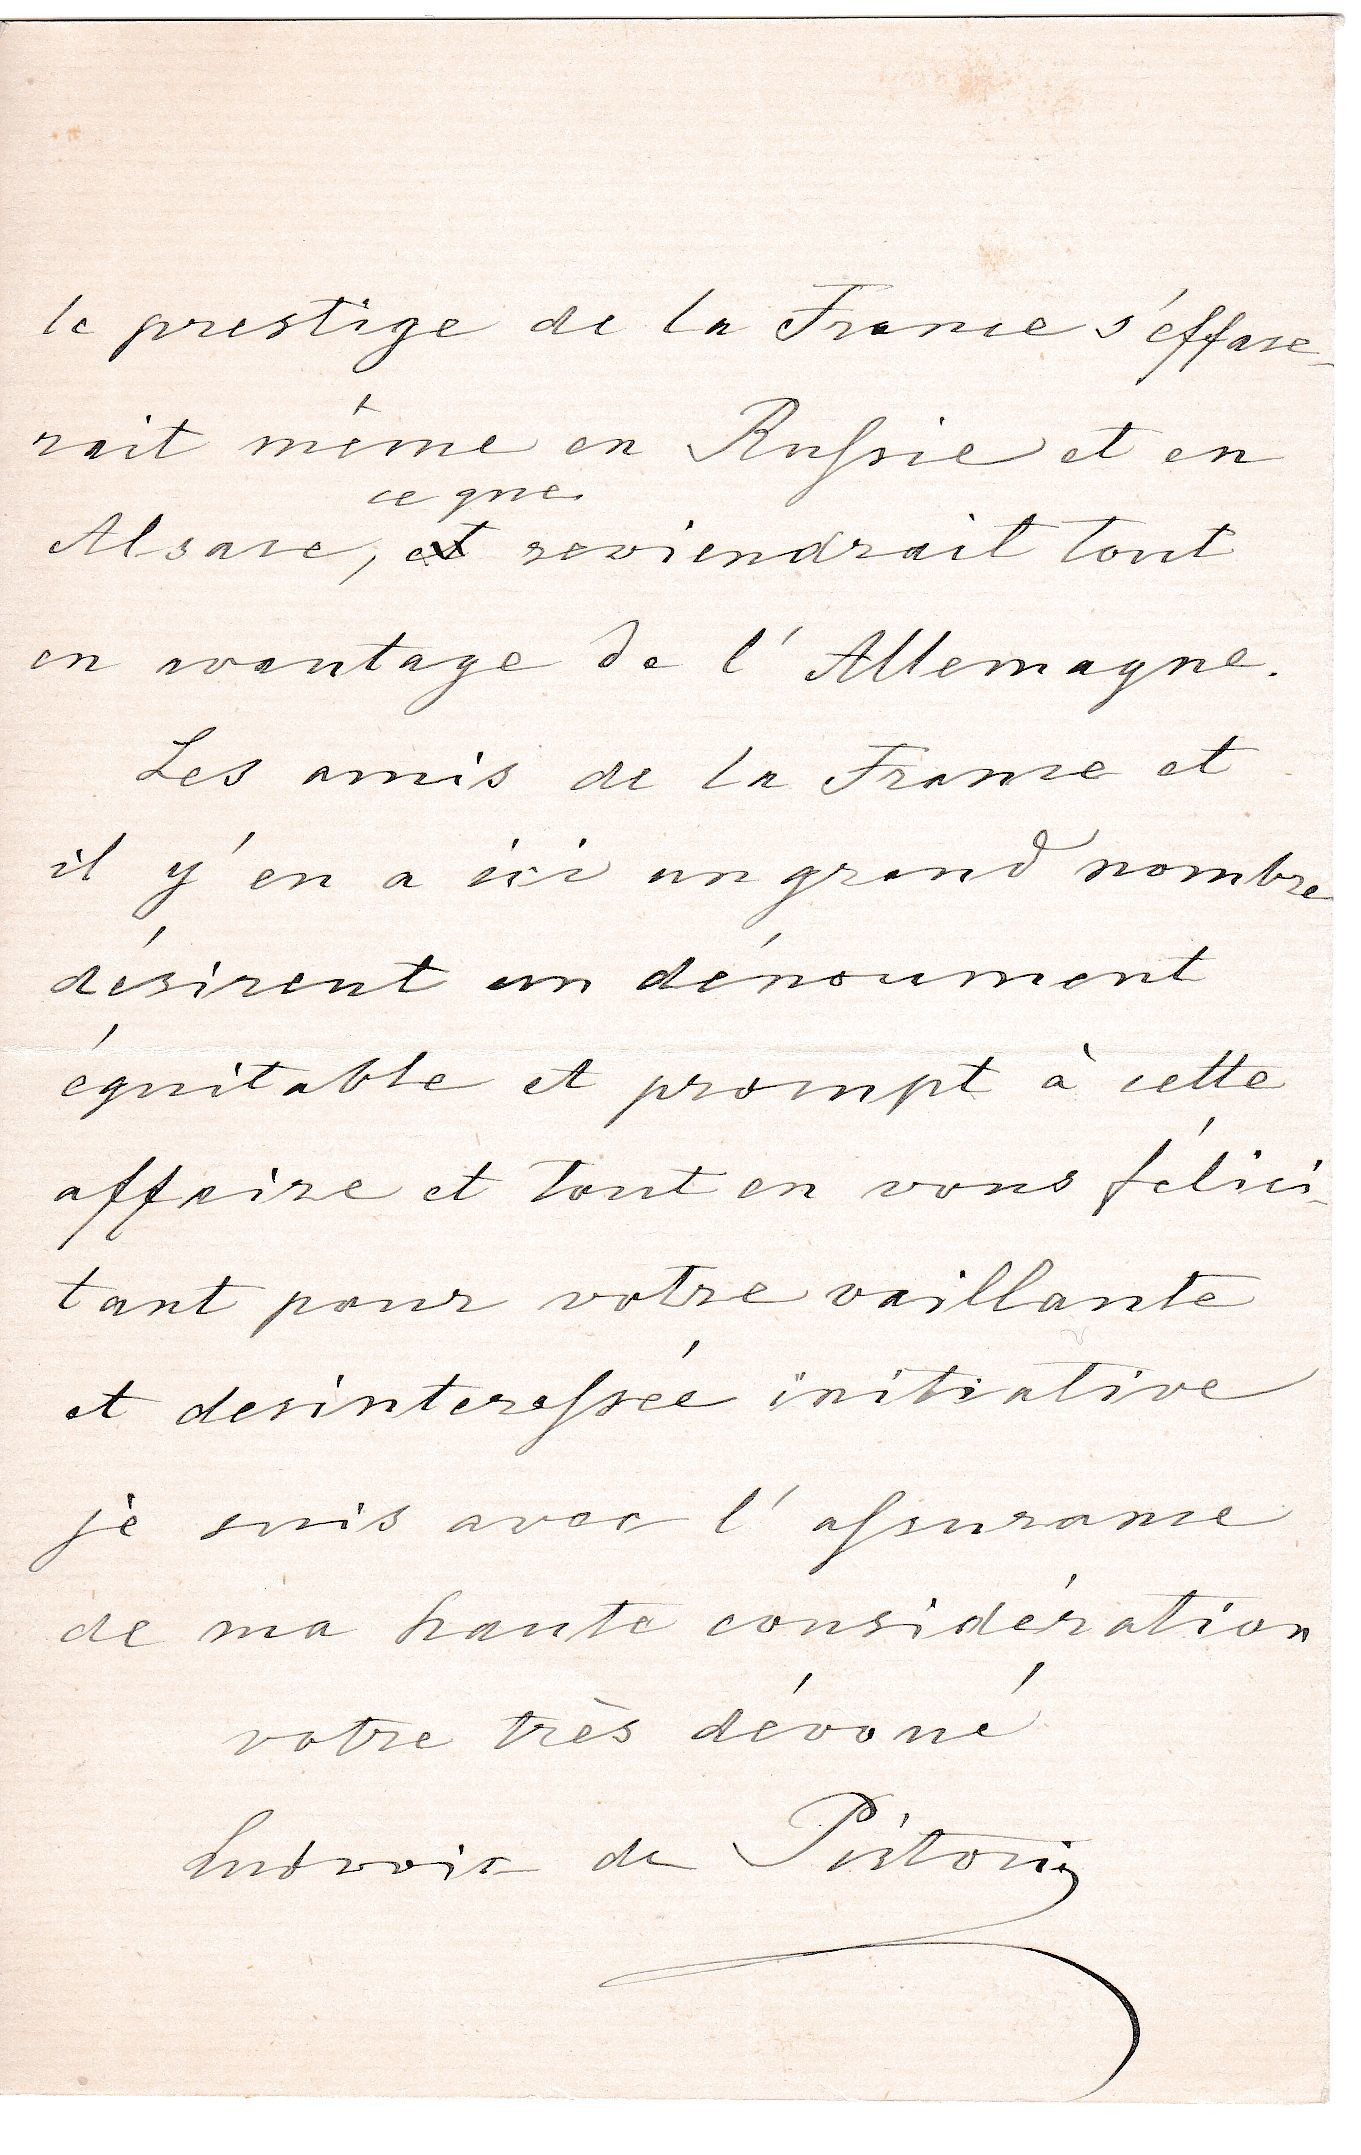 le prestige de la France s'éfface-
rait même en Russie et en
ce que
Alsace, et reviendrait tout
en avantage de l'Allemagne.
Les amis de la France et
il y'en a ici un grand nombre
désirent un dénoument
équitable et prompt à cette
affaire et tout en vous félici-
tant pour votre vaillante
et desinteressée initiative
je suis avec l'assurance
de ma haute considération
votre très dévoué
de